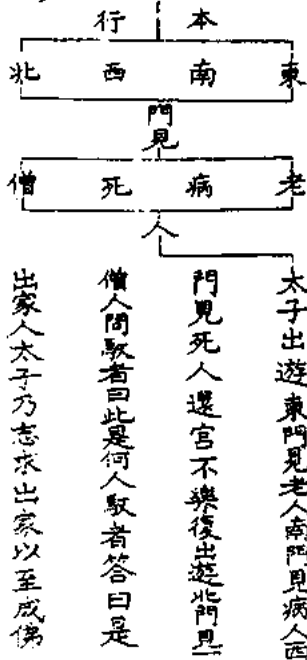 本行
東南西北
門見
老病死僧
人
太子出遊東門見老人南門見病人西
門見死人還宮不樂復出遊北門見一
僧人問馭者曰此是何人馭者答曰是
出家人太子乃志求出家以至成佛